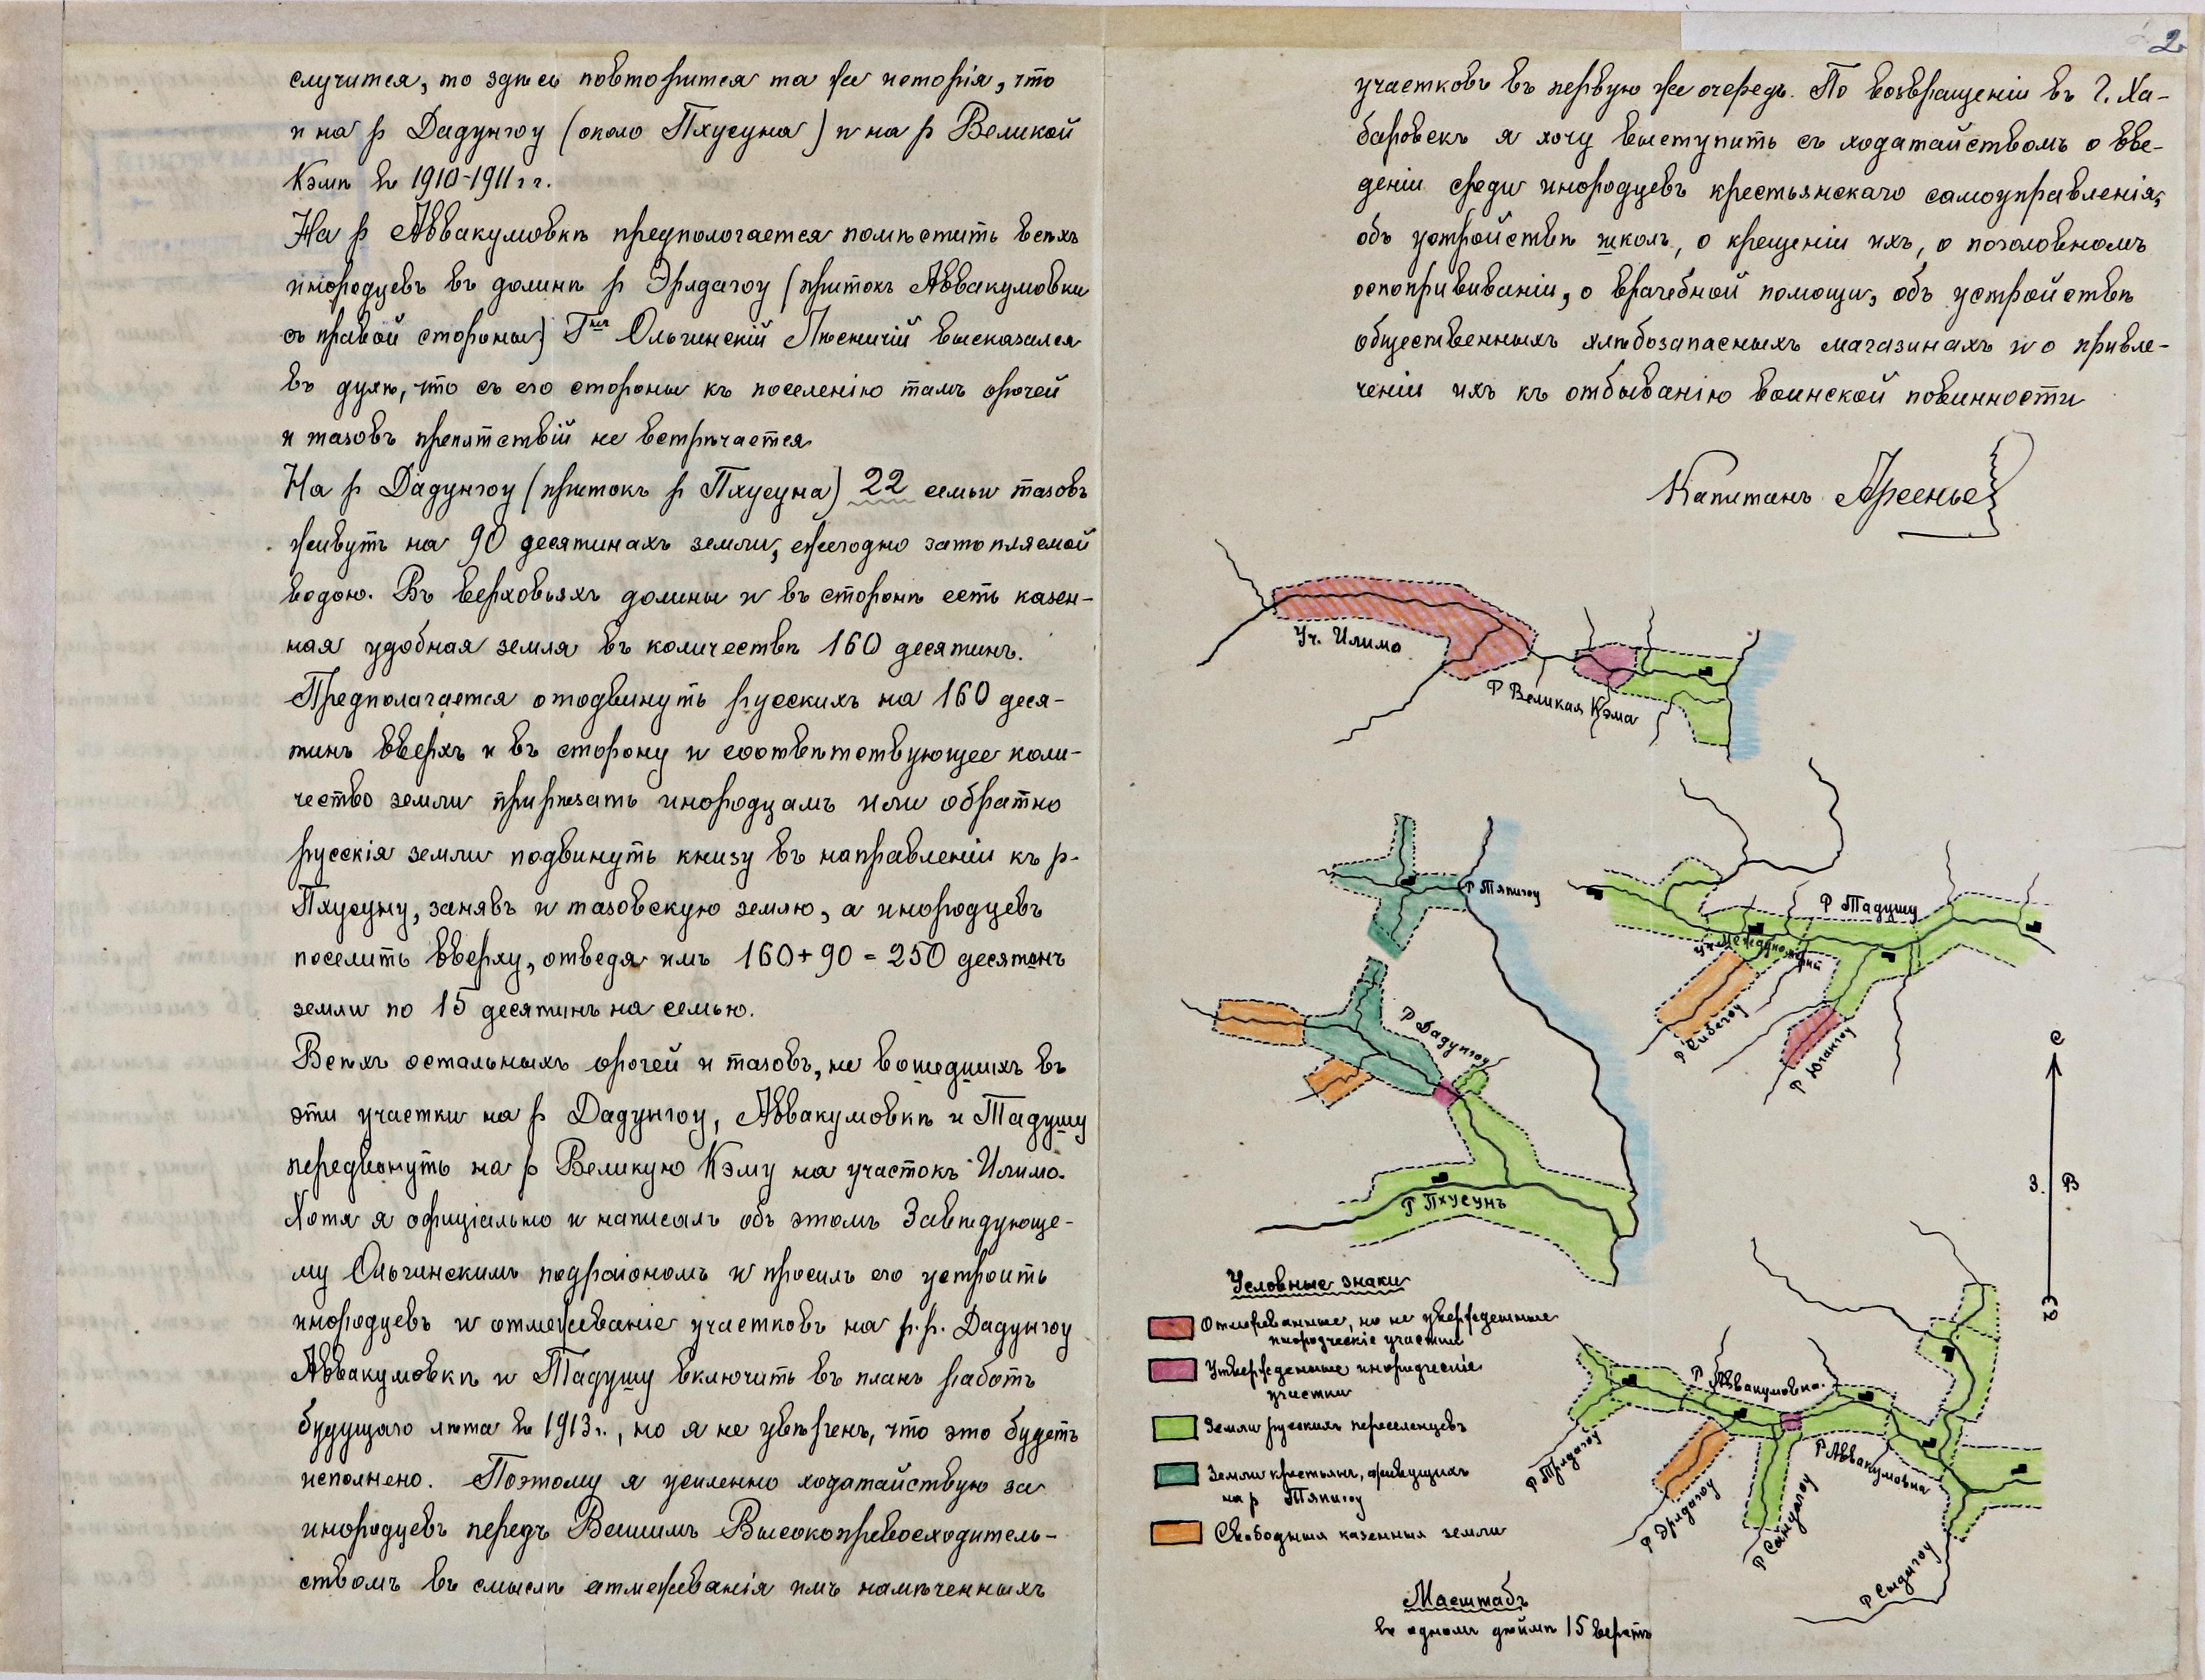 случится, то здѣсь повторится та же исторія, что
и на р Дадунгоу (около Пхусуна) и на р Великой
Кэмѣ въ 1910-1911 г г.
На р Аввакумовкѣ предпологается помѣстить всѣхъ
инородцевъ въ долинѣ р Эрлдагоу (притокъ Аввакумовки
съ правой стороны) Г-нъ Ольгинскій Лѣсничій высказался
въ духѣ, что съ его стороны къ поселенію тамъ орочей
и тазовъ препятствій не встрѣчается
На р Дадунгоу (притокъ р Пхусуна) 22 семьи тазовъ
живутъ на 90 десятинахъ земли, ежегодно затопляемой
водою. Въ верховьяхъ долины и въ сторонѣ есть казен-
ная удобная земля въ количествѣ 160 десятинъ.
Предполагается отодвинуть русскихъ на 160 деся-
тинъ вверхъ и въ сторону и соотвѣтствующее коли-
чество земли прирѣзать инородцамъ или обратно
русскія земли подвинуть книзу въ направленіи къ р-
Пхусуну, занявъ и тазовскую землю, а инородцевъ
поселить вверху, отведя имъ 160+90=250 десятинъ
земли по 15 десятинъ на семью.
Всѣхъ остальныхъ орочей и тазовъ, не вошедшихъ въ
эти участки на р Дадунгоу, Аввакумовкѣ и Тадушу
передвинуть на р Великую Кэму на участокъ Илимо.
Хотя я офиціально и написалъ объ этомъ Завѣдующе-
му Ольгинскимъ подраіономъ и просилъ его устроить
инородцевъ и отмежеваніе участковъ на р.р. Дадунгоу
Аввакумовкѣ и Тадушу включить въ планъ работъ
будущаго лѣта въ 1913 г., но я не увѣренъ, что это будетъ
исполнено. Поэтому я усиленно ходатайствую за
инородцевъ передъ Вашимъ Высокопревосходитель-
ствомъ въ смыслѣ отмежеванія имъ намѣченныхъ
2
участковъ въ первую же очередь. По возвращеніи въ г. Ха-
баровскъ я хочу выступить съ ходатайствомъ о вве-
деніи среди инородцевъ крестьянскаго самоуправленія,
объ устройствѣ школъ, о крещеніи ихъ, о поголовномъ
оспопрививаніи, о врачебной помощи, объ устройствѣ
общественныхъ хлѣбозапасныхъ магазинахъ и о привле-
ченіи ихъ къ отбыванію воинской повинности
Капитанъ Арсеньев
Уч. Илимо
Р Великая Кэма
Р Тяпигоу
Р Тадушу
уч Междуногорный
Р Сибегоу
Р Юшангоу
Р Дадунгоу
Р Пхусунъ
С
З. В
Ю
Условные знаки
Отмежеванные, но не утвержденные
инородческіе участки
Утвержденные инородческіе
участки
Земли русскихъ переселенцевъ
Земли крестьянъ, живущихъ
на р Тяпигоу
Свободныя казенныя земли
Р Аввакумовка.
Р Аввакумовка
Р Трдагоу
Р Эрлдагоу
Р Сандагоу
Р Сыдигоу
Масштабъ
въ одномъ дюймѣ 15 верстъ